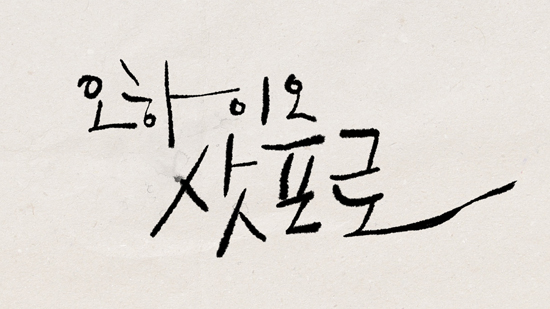 오하이오
삿포로